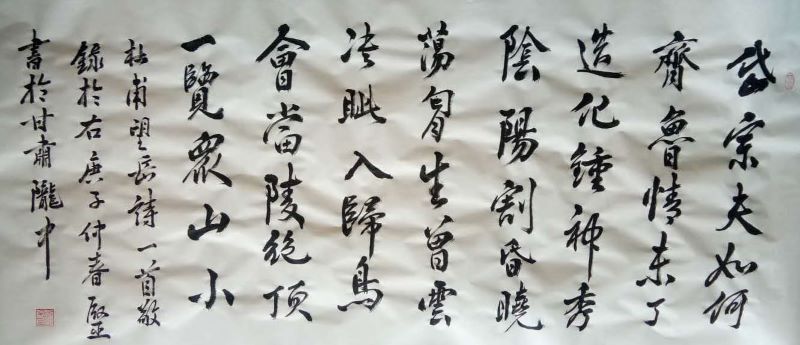 岱宗夫如何
齊魯情未了
造化鍾神秀
陰陽割昏曉
蕩胷生曾雲
决眦入歸鳥
會當陵絕頂
一覽眾山小
杜甫望岳詩一首敬
錄於右庚子仲春
書於甘肅隴中